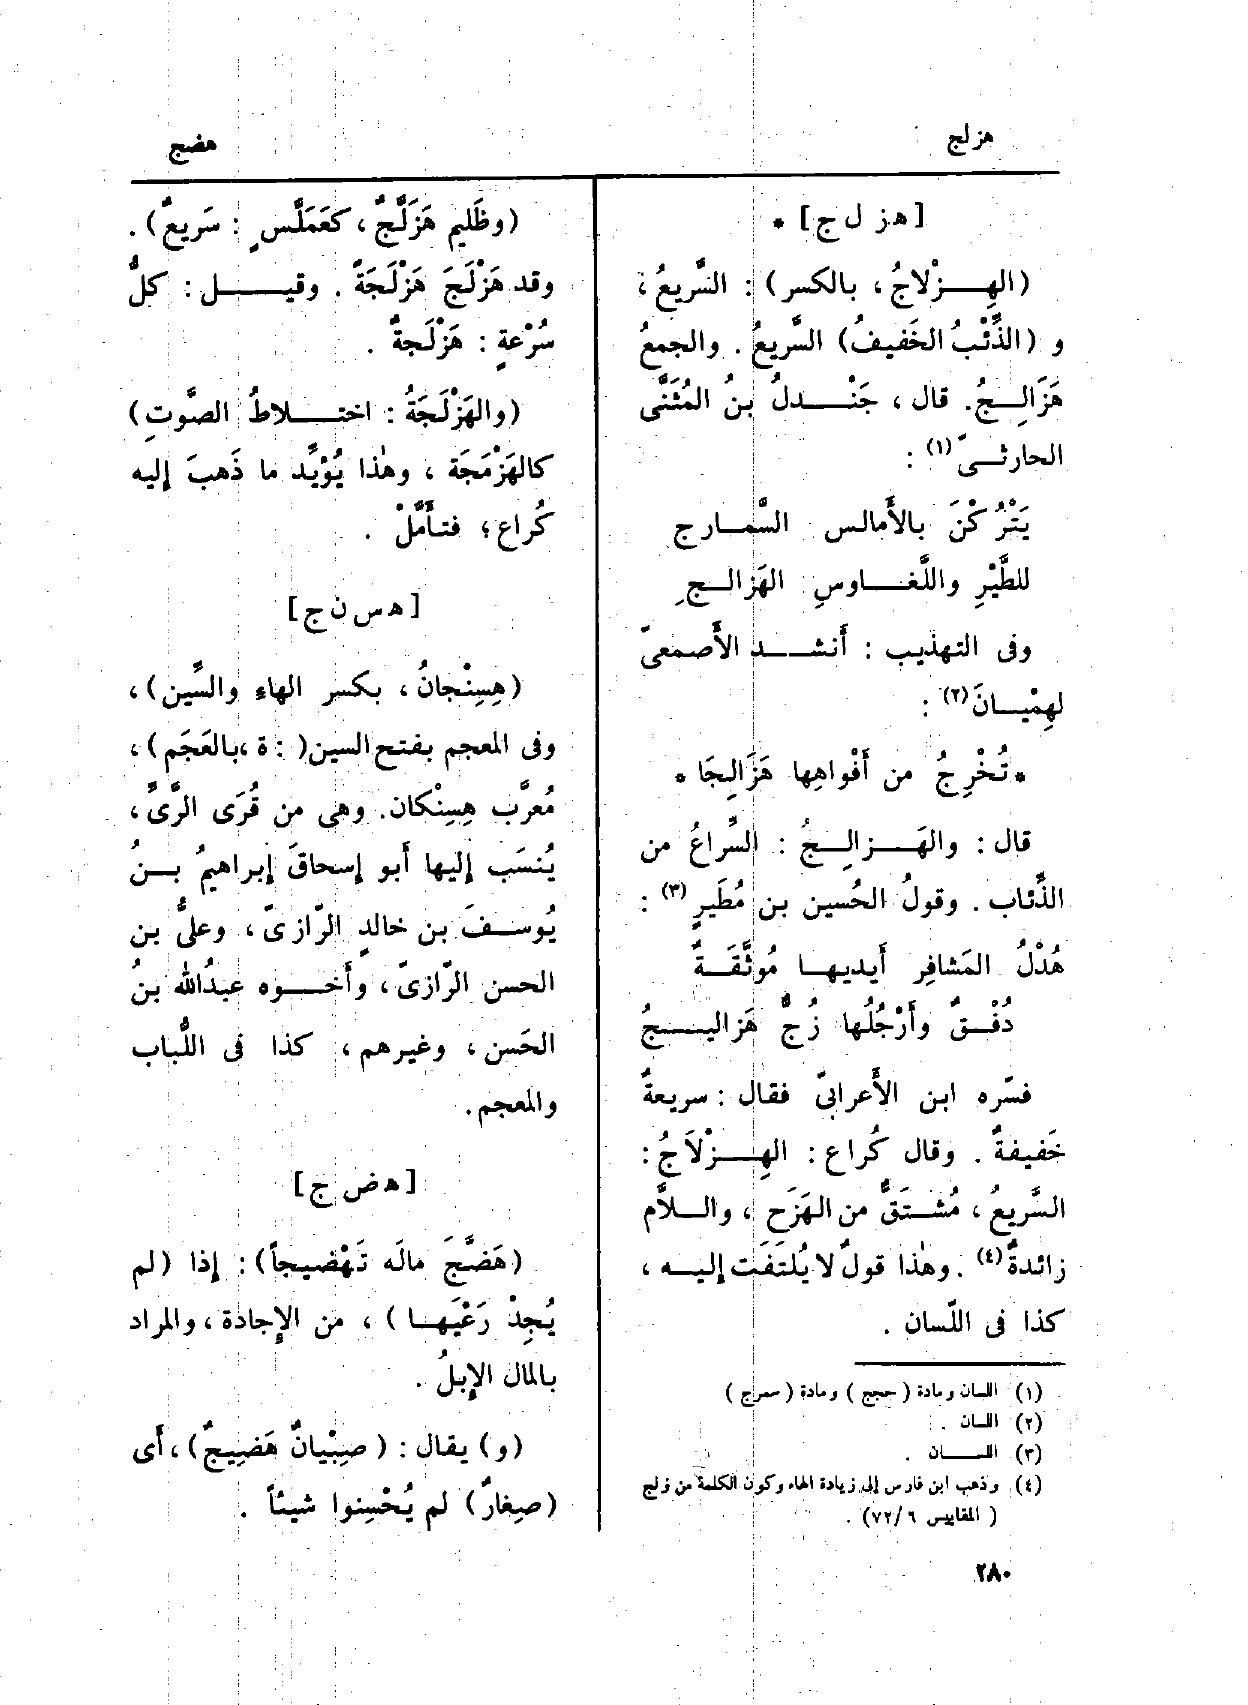 هزلج
هضج
[هـ ز ل ج] *
(الهِزْلاجُ ، بالكسر) : السَّريعُ ،
و (الذِّئْبُ الخَفيفُ) السَّريعُ . والجمعُ
هَزَالِجُ. قال ، جَنْدلُ بنُ المُثَنَّى
الحارثىّ (١) :
يَتْرُكْنَ بالأَمالس السَّمارج
للطَّيْرِ واللَّغاوسِ الهَزالجِ
وفى التهذيب : أَنشد الأَصمعىّ
لهِمْيانَ (٢) :
* تُخْرِجُ من أَفْواهِها هَزَالِجَا *
قال : والهَزالِجُ : السِّراعُ من
الذِّئاب . وقولُ الحُسين بن مُطَيرٍ (٣) :
هُدْلُ المَشافِر أَيديها مُوثَّقَةٌ
دُفْقٌ وأَرْجُلُها زُجٌّ هَزاليجُ
فسّره ابن الأَعرابىّ فقال : سريعةٌ
خَفيفةٌ . وقال كُراع : الهِزْلاَجُ :
السَّريعُ ، مُشتَقٌّ من الهَزَج ، واللاَّم
زائدةٌ (٤) . وهٰذا قولٌ لا يُلتَفَت إليه ،
كذا فى اللّسان .
(١) اللسان ومادة ( حجج ) ومادة ( سمرج )
(٢) اللسان .
(٣) اللسان .
(٤) وذهب ابن فارس إلى زيادة الهاء وكون الكلمة من زلج
( المقاييس ٦ /٧٢) .
(وظَليم هَزَلَّجٌ ، كعَمَلَّسٍ : سَريعٌ) .
وقد هَزْلَجَ هَزْلَجَةً . وقيل : كلُّ
سُرْعةٍ : هَزْلَجةٌ .
(والهَزْلَجَةُ : اختلاطُ الصَّوتِ)
كالهَزْمَجَة ، وهٰذا يُؤيِّد ما ذَهبَ إليه
كُراع؛ فتأَمَّلْ .
[هـ س ن ج]
(هِسِنْجانُ ، بكسر الهاءِ والسِّين) ،
وفى المعجم بفتح السين( : ة ،بالعَجَم) ،
مُعرَّب هِسِنْكان. وهى من قُرَى الرَّىِّ ،
يُنسَب إليها أَبو إسحاقَ إبراهيمُ بنُ
يُوسفَ بن خالدٍ الرّازىّ ، وعلىُّ بن
الحسن الرّازىّ ، وأَخوه عبدُالله بنُ
الحَسن ، وغيرهم ، كذا فى اللُّباب
والمعجم.
[هـ ض ج]
(هَضَّجَ مالَه تَهْضيجاً) : إذا (لم
يُجِدْ رَعْيَها ) ، من الإِجادة ، والمراد
بالمال الإِبلُ .
(و) يقال : ( صِبْيانٌ هَضِيجٌ) ، أَى
(صِغارٌ) لم يُحْسِنوا شيئاً .
٢٨٠